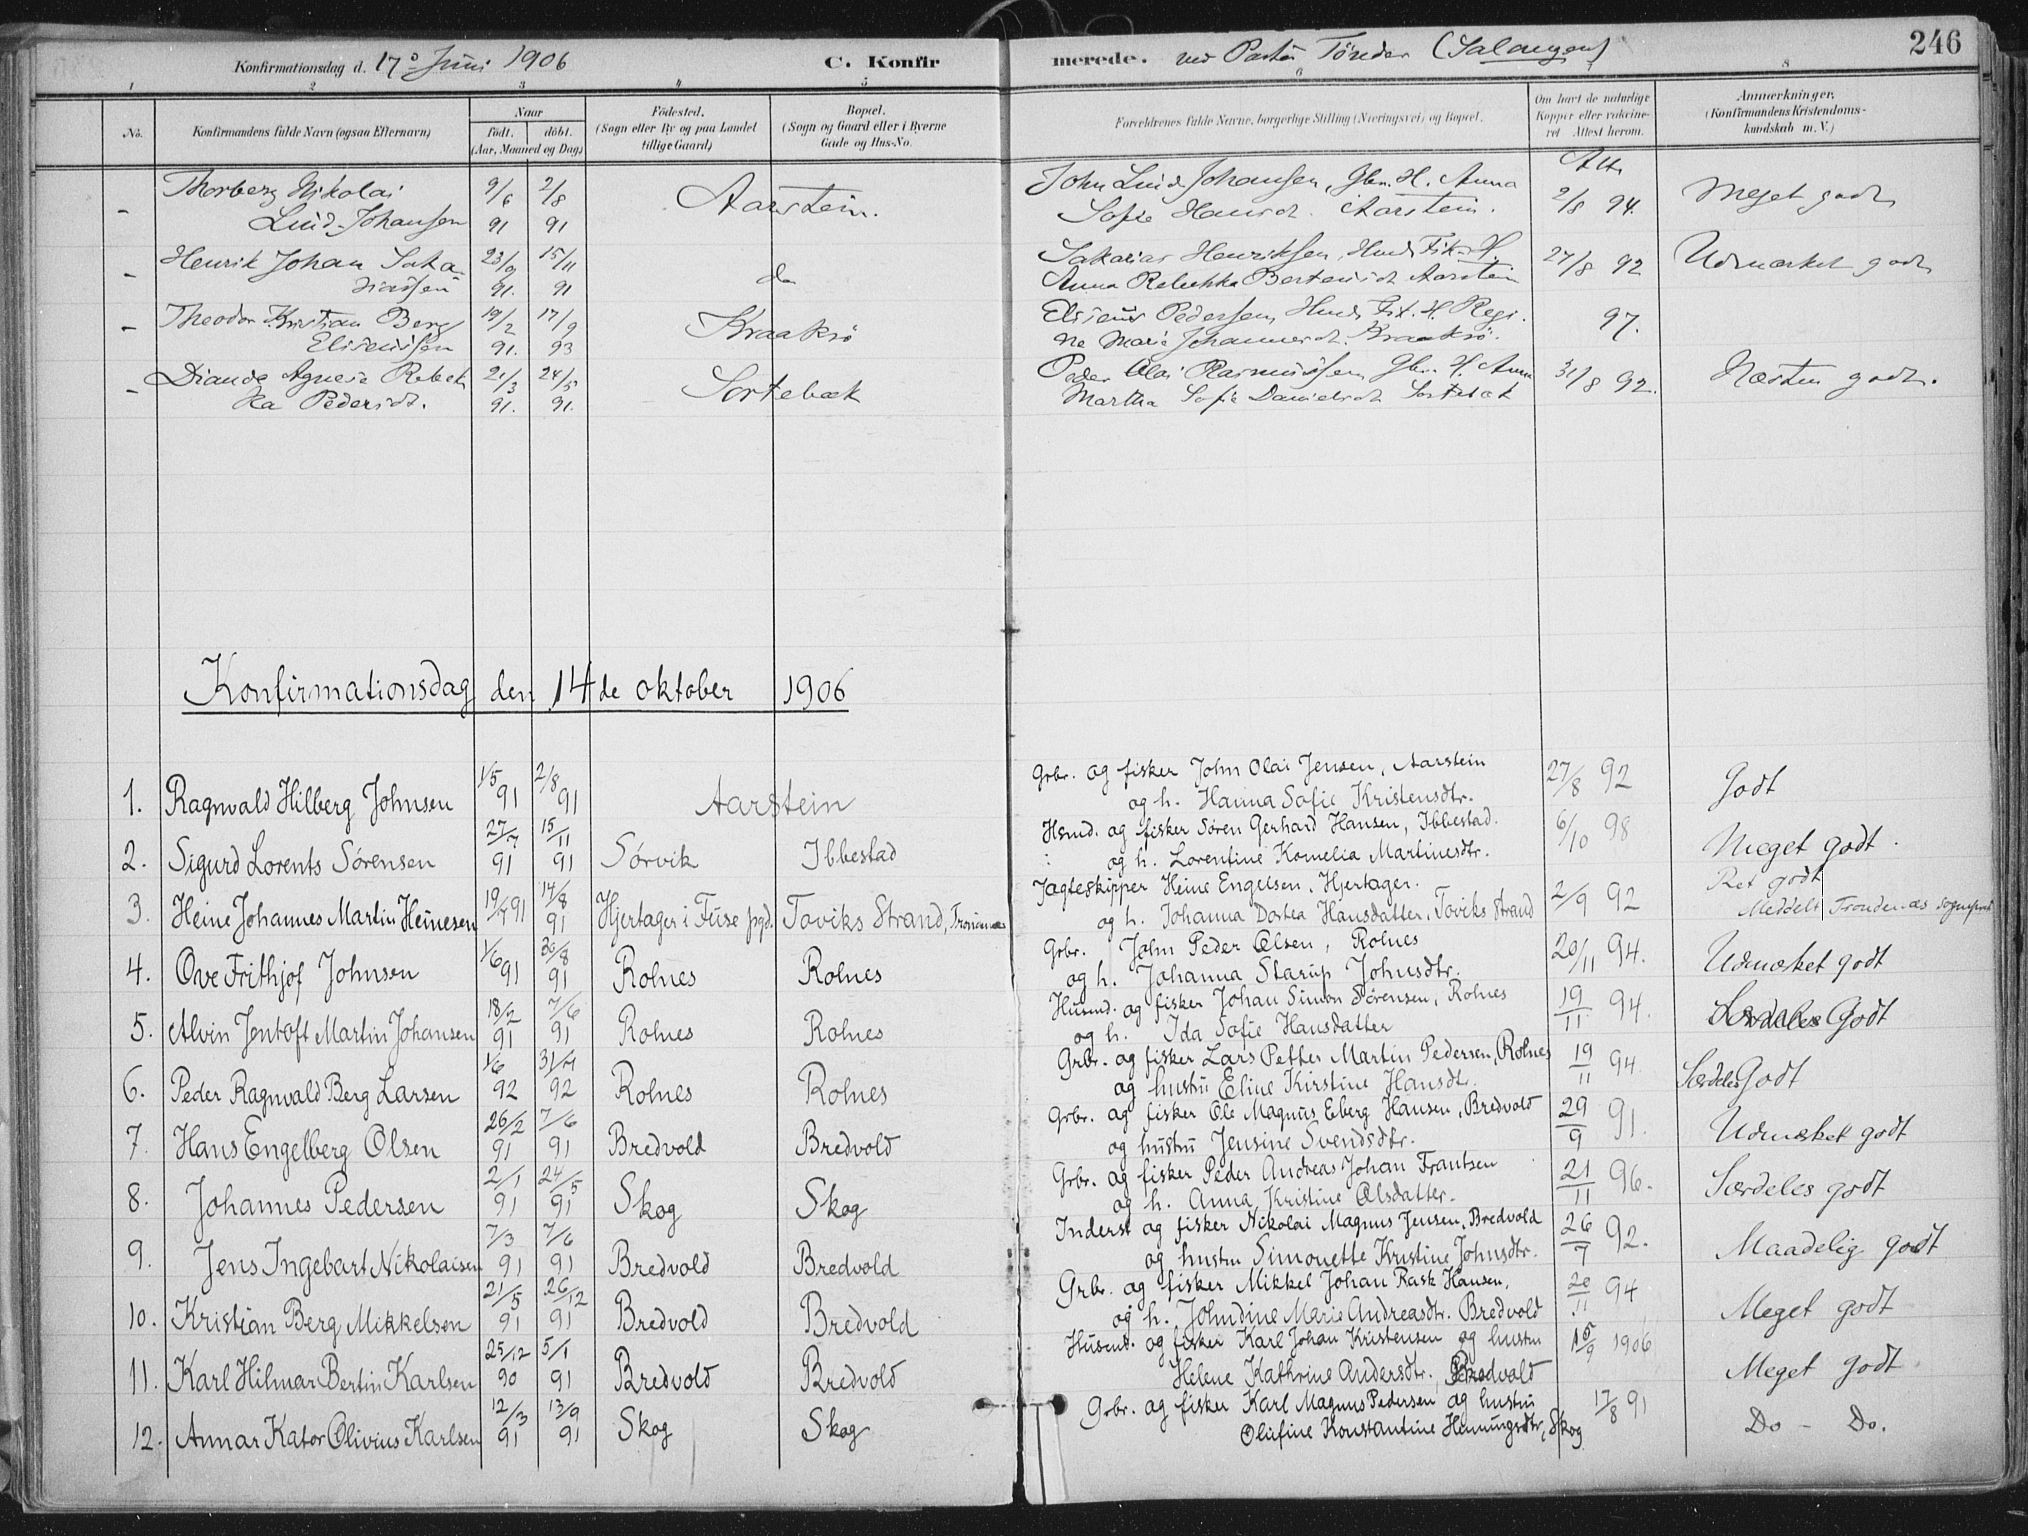 Konfirmationsdag d. 17de Juni 1906 C. Konfirmerede. ved Pastor Tönder (Salangen) 246
1 2 3 4 5 6 8
No. Konfirmandens fulde Navn (ogsaa Efternavn) Naar födt. döbt. (Aar, Maaned og Dag) Födested. (Sogn eller By og paa Landet tillige Gaard) Bopæl. (Sogn og Gaard eller i Byerne Gade og Hus-No.
Forældrenes fulde Navne, borgerlige Stilling (Næringsvei) og Bopæl. Om havt de naturlige Kopper eller vakcineret Attest herom. Anmærkninger. (Konfirmandens Kristendomskundskab m. V.)
Att.
- Thorberg Nikolai 9/6 2/8 Aarstein. John Lind Johansen, Gbr. H. Anna 2/8 94. Meget godt
Lind-Johansen 91 91 Sofie Hansdt. Aarstein.
- Henrik Johan Saka- 23/9 15/11 do Sakarias Henriksen, Husm. Fisk. H. 27/8 92 Udmærket godt
riassen 91. 91 Anna Rebekka Berteusdt Aarstein
- Theodor Kristian Berg 19/2 17/9 Kraaksö Eliseus Pedersen, Husm. Fisk. H. Regi- 97.
Eliseussen 91. 93 ne Marie Johannesdt. Kraaksö.
- Diande Agnesa Rebek 21/3 24/5 Sortebæk Peder Olai Rasmussen, Gbr. H. Anna 31/8 92. Næsten godt.
ka Pedersdt. 91. 91. Martha Sofie Danielsdt Sortebæk
Konfirmationsdag den 14de oktober 1906
1. Ragnvald Hilberg Johnsen 1/5 91 2/8 91 Aarstein Grbr. og fisker John Olai Jensen, Aarstein 27/8 92 Godt
og h. Hanna Sofie Kristensdtr.
2. Sigurd Lorents Sörensen 27/7 91 15/11 91 Sörvik Ibbestad Hsmd. og fisker Søren Gerhard Hansen, Ibbestad. 6/10 98 Meget godt.
og h. Lorentine Kornelia Martinesdtr.
3. Heine Johannes Martin Heinesen 19/4 91 14/8 91 Hjertager i Fuse pgd. Toviks Strand, Trondenæs Jagteskipper Heine Engelsen, Hjertager. 2/9 92 Ret godt
og h. Johanna Dortea Hansdatter, Toviks Strand Meddelt Trondenæs sogneprest
4. Ove Frithjof Johnsen 1/6 91 30/8 91 Rolnes Rolnes Grbr. John Peder Olsen, Rolnes 20/11 94. Udmærket godt
og h. Johanna Starup Johnsdtr.
5. Alvin Jentoft Martin Johansen 18/2 91 7/6 91 Rolnes Rolnes Husmd. og fisker Johan Simon Sörensen, Rolnes 19/11 94. Særdeles Godt
og h. Ida Sofie Hansdatter
6. Peder Ragnvald Berg Larsen 1/6 92 31/7 92 Rolnes Rolnes Grbr. og fisker Lars Petter Martin Pedersen, Rolnes 19/11 94 Særdeles Godt
og hustru Eline Kirstine Hansdtr.
7. Hans Engelberg Olsen 26/2 91 7/6 91 Bredvold Bredvold Grbr. og fisker Ole Magnus Eberg Hansen, Bredvold 29/9 91. Udmærket godt
og hustru Jensine Svendsdtr.
8. Johannes Pedersen 2/1 91 24/5 91 Skog Skog Grbr. og fisker Peder Andreas Johan Frantsen 21/11 96. Særdeles godt
og h. Anna Kristine Olsdatter.
9. Jens Ingebart Nikolaisen 7/3 91 7/6 91 Bredvold Bredvold Inderst og fisker Nikolai Magnus Jensen, Bredvold 26/7 92. Maadelig godt
og hustru Simonette Kristine Johnsdtr.
10. Kristian Berg Mikkelsen 21/5 91 26/12 91 Bredvold Bredvold Grbr. og fisker Mikkel Johan Rask Hansen, 20/11 94 Meget godt
og h. Johndine Marie Andreasdtr. Bredvold
11. Karl Hilmar Bertin Karlsen 25/12 90 5/1 91 Bredvold Bredvold Husmd. og fisker Karl Johan Kristensen og hustru 15/9 1906 Meget godt
Helene Kathrine Andersdtr., Bredvold
12. Annar Kator Olivius Karlsen 12/3 91 13/9 91 Skog Skog Grbr. og fisker Karl Magnus Pedersen og hustru 17/8 91 Do - Do.
Olufine Konstantine Henningsdtr, Skog